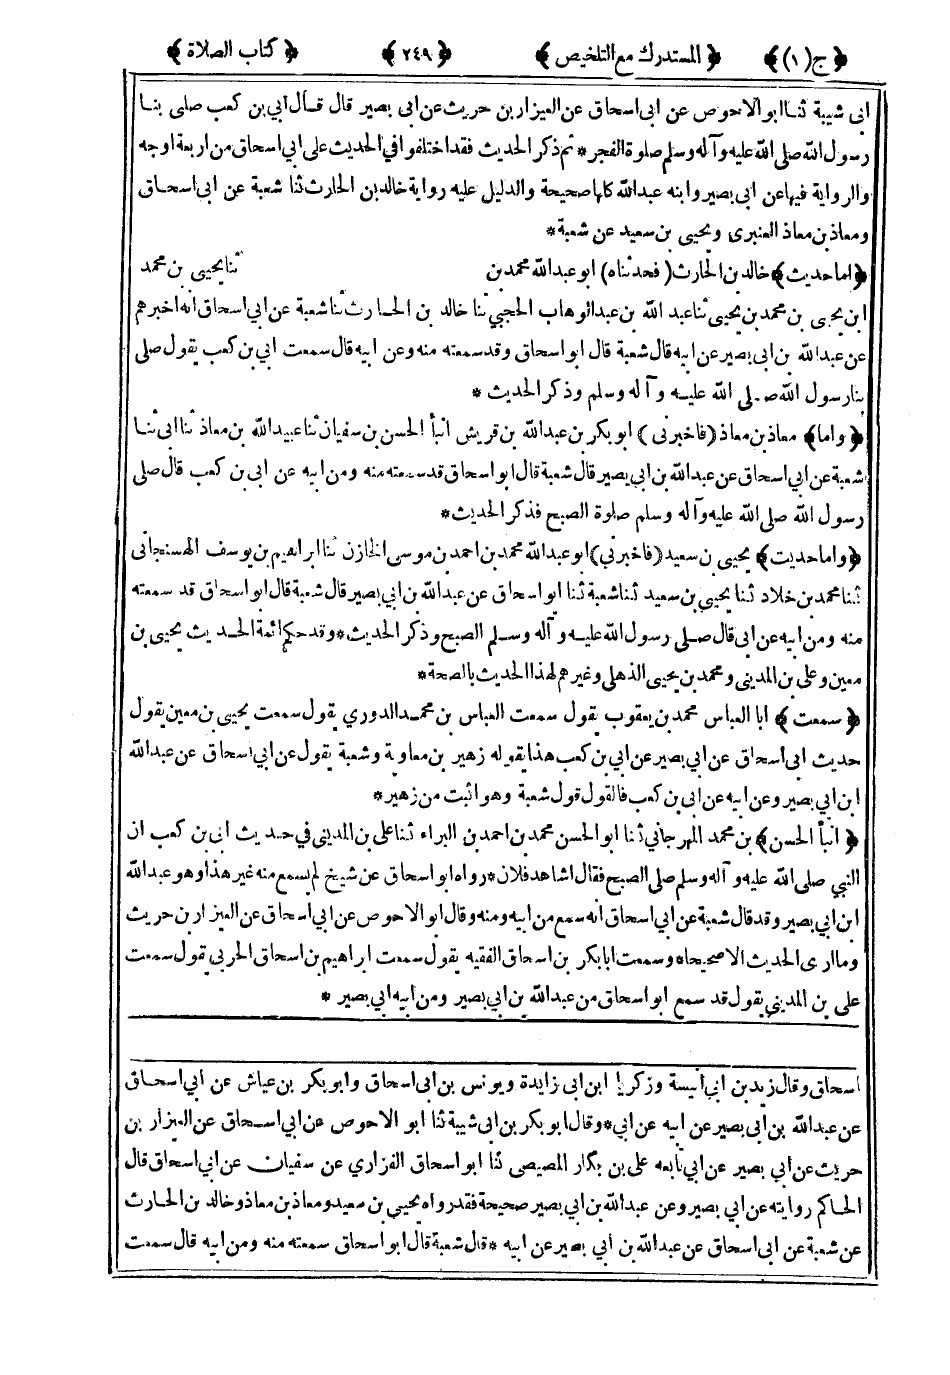 ﴿ ج (١) ﴾ ﴿ المستدرك مع التلخيص ﴾ ﴿ ٢٤٩ ﴾ ﴿ كتاب الصلاة ﴾
ابى شيبة ثنا ابو الاحوص عن ابى اسحاق عن العيزار بن حريث عن ابى بصير قال قال ابي بن كعب صلى بنا
رسول الله صلى الله عليه وآله وسلم صلوة الفجر * ثم ذكر الحديث فقد اختلفوا في الحديث على ابي اسحاق من اربعة اوجه
والرواية فيها عن ابى بصير وابنه عبدالله كلها صحيحة والدليل عليه رواية خالد بن الحارث ثنا شعبة عن ابى اسحاق
ومعاذ بن معاذ العنبرى ويحيى بن سعيد عن شعبة *
﴿ اما حديث ﴾ خالد بن الحارث ( فحدثناه ) ابو عبدالله محمد بن ثنا يحيى بن محمد
ابن يحيى بن محمد بن يحيى ثنا عبد الله بن عبد الوهاب الحجبي ثنا خالد بن الحارث ثنا شعبة عن ابي اسحاق انه اخبرهم
عن عبدالله بن ابى بصير عن ابيه قال شعبة قال ابو اسحاق وقد سمعته منه وعن ابيه قال سمعت ابي بن كعب يقول صلى
بنا رسول الله صلى الله عليه وآله وسلم وذكر الحديث *
﴿ واما ﴾ معاذ بن معاذ ( فاخبرنى ) ابو بكر بن عبدالله بن قريش انبأ الحسن بن سفيان ثنا عبيدالله بن معاذ ثنا ابى ثنا
شعبة عن ابي اسحاق عن عبدالله بن ابي بصير قال شعبة قال ابو اسحاق قد سمعته منه ومن ابيه عن ابى بن كعب قال صلى
رسول الله صلى الله عليه وآله وسلم صلوة الصبح فذكر الحديث *
﴿ واما حديث ﴾ يحيى بن سعيد ( فاخبرني ) ابو عبدالله محمد بن احمد بن موسى الخازن ثنا ابراهيم بن يوسف الهسنجانى
ثنا محمد بن خلاد ثنا يحيى بن سعيد ثنا شعبة ثنا ابو اسحاق عن عبدالله بن ابي بصير قال شعبة قال ابو اسحاق قد سمعته
منه ومن ابيه عن ابى قال صلى رسول الله عليه وآله وسلم الصبح وذكر الحديث * وقد حكم ائمة الحديث يحيى بن
معين وعلى بن المدينى ومحمد بن يحيى الذهلى وغيرهم لهذا الحديث بالصحة *
﴿ سمعت ﴾ ابا العباس محمد بن يعقوب يقول سمعت العباس بن محمد الدوري يقول سمعت يحيى بن معين يقول
حديث ابى اسحاق عن ابي بصير عن ابي بن كعب هذا يقوله زهير بن معاوية وشعبة يقول عن ابي اسحاق عن عبدالله
ابن ابي بصير وعن ابيه عن ابى بن كعب فالقول قول شعبة وهو اثبت من زهير *
﴿ انبأ الحسن ﴾ بن محمد المهرجاني ثنا ابو الحسن محمد بن احمد بن البراء ثنا على بن المديني في حديث ابى بن كعب ان
النبي صلى الله عليه وآله وسلم صلى الصبح فقال اشاهد فلان * رواه ابو اسحاق عن شيخ لم يسمع منه غير هذا وهو عبدالله
ابن ابي بصير وقد قال شعبة عن ابي اسحاق انه سمع من ابيه ومنه وقال ابو الاحوص عن ابي اسحاق عن العيزار بن حريث
وما ارى الحديث الا صحيحا * وسمعت ابا بكر بن اسحاق الفقيه يقول سمعت ابراهيم بن اسحاق الحربي يقول سمعت
على بن المدينى يقول قد سمع ابو اسحاق من عبدالله بن ابي بصير ومن ابيه ابي بصير *
اسحاق وقال زيد بن ابي انيسة وزكريا ابن ابى زايدة ويونس بن ابى اسحاق وابو بكر بن عياش عن ابي اسحاق
عن عبدالله بن ابى بصير عن ابيه عن ابي * وقال ابو بكر بن ابى شيبة ثنا ابو الاحوص عن ابي اسحاق عن العيزار بن
حريث عن ابي بصير عن ابي تابعه على بن بكار المصيصى ثنا ابو اسحاق الفزاري عن سفيان عن ابي اسحاق قال
الحاكم روايته عن ابي بصير وعن عبدالله بن ابي بصير صحيحة فقد رواه يحيى بن سعيد ومعاذ بن معاذ وخالد بن الحارث
عن شعبة عن ابى اسحاق عن عبدالله بن ابي بصير عن ابيه * قال شعبة قال ابو اسحاق سمعته منه ومن ابيه قال سمعت